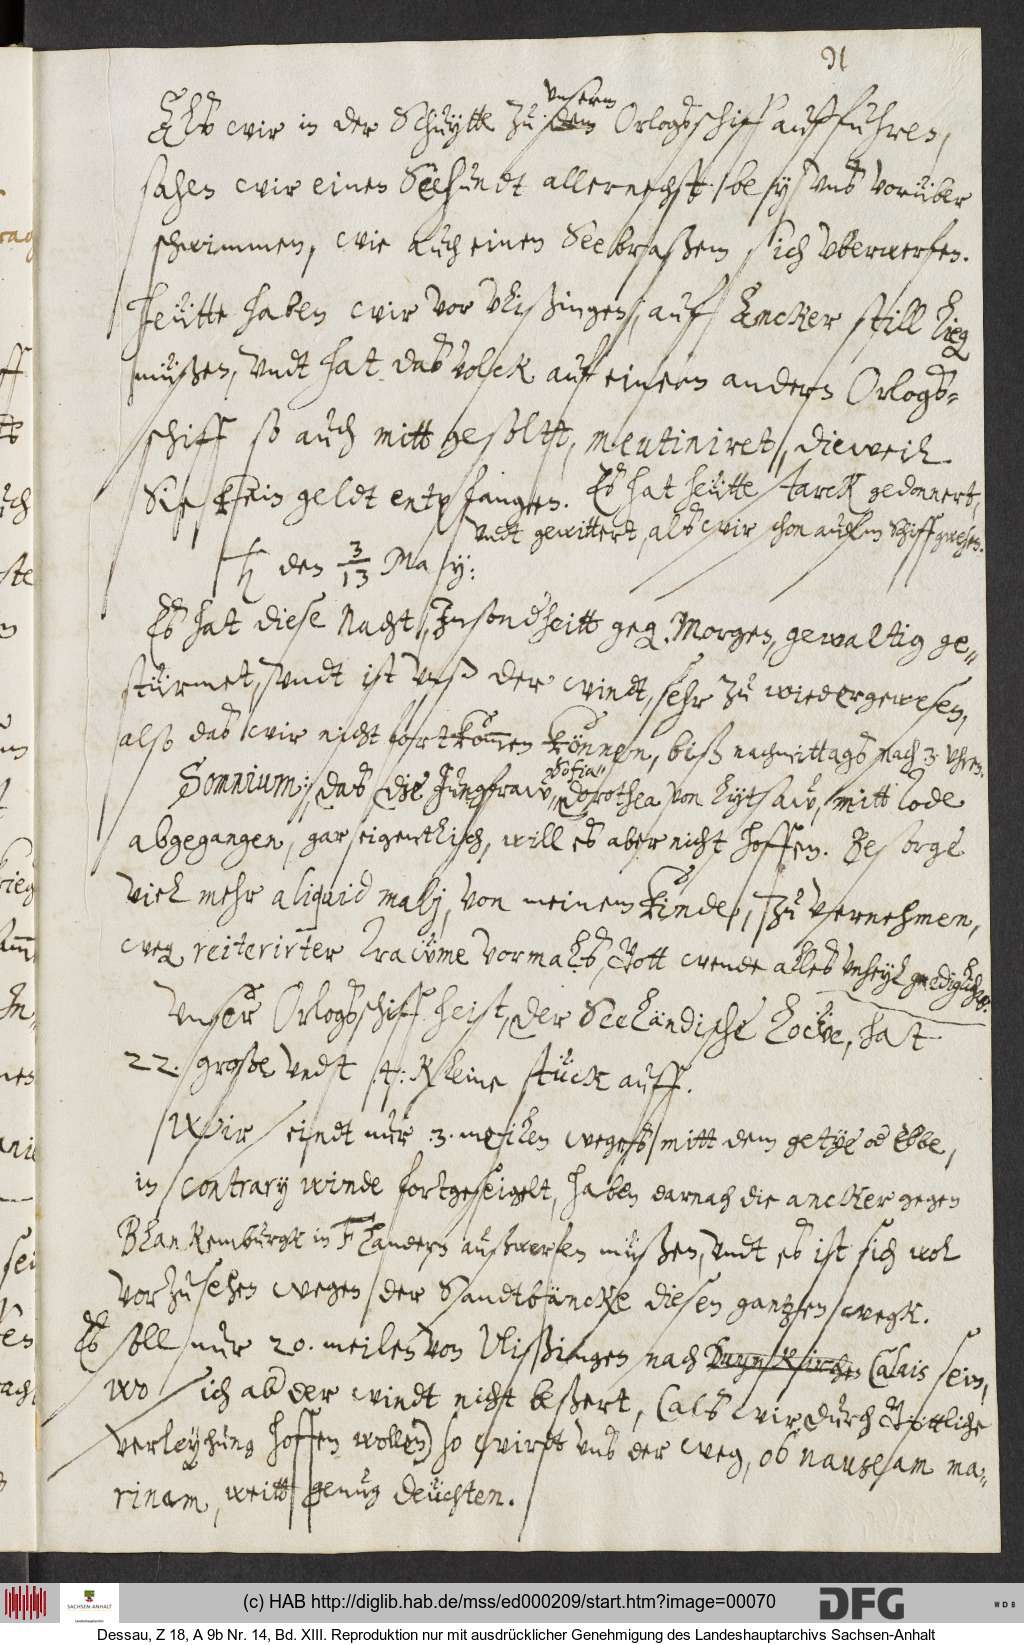 Alß wir in der Schuytte zu dem unserm Orlogsschiff auffuhren,
sahen wir einen Seehundt allernechst bey uns vorüber
schwimmen, wie auch einen Seebraßem sich uberwerfen.
Heutte haben wir vor Vlißingen, auf Ancker still lieg
müßen, undt hat das volck auf einem andern Orlogs=
schiff so auch mitt gesollt, meutiniret, dieweil
Sie kein geldt entpfangen. Es hat heütte starck gedonnert,
undt gewittert, als wir schon aufm Schiff gewesen.
♄ den 3/13 May:
Es hat diese Nacht, Insonderheitt geg. Morgen, gewaltig ge=
stürmet, undt ist unß der windt, sehr zu wieder gewesen,
also das wir nicht fortkommen können, biß nachmittags nach 3 Uhren.
Somnium: das die Jungfraw, Sofia Dorothea von Lytsaw, mitt Tode
abgegangen, gar eigentlich, will es aber nicht hoffen. Besorge
viel mehr aliquid malj, von meinem kinde, zu vernehmen,
weg. reiterirter Traüme vormalß, Gott wende alles unheyl gnediglich ab.
Unser Orlogsschiff heist, der Seeländische Löwe, hat
22. große undt 4: kleine stück auff.
Wir seindt nur 3. meilen weges mitt dem getye od Ebbe,
in contrary winde fortgeseigelt, haben darnach die ancker gegen
Blankemburgk in Flandern außwerfen müßen, undt es ist sich wol
vorzusehen wegen der Sandtbäncke diesen gantzen wegk.
Es soll nur 20. meilen von Vlißingen nach Duynkirchen Calais sein,
wo sich aber der windt nicht beßert, (als wir durch Göttliche
verleyhung hoffen wollen) so wirdt uns der weg, ob nauseam ma=
rinam, weitt genug deüchten.
(c) HAB http://diglib.hab.de/mss/ed000209/start.htm?image=00070
SACHSEN-ANHALT
DFG
WDB
Dessau, Z 18, A 9b Nr. 14, Bd. XIII. Reproduktion nur mit ausdrücklicher Genehmigung des Landeshauptarchivs Sachsen-Anhalt